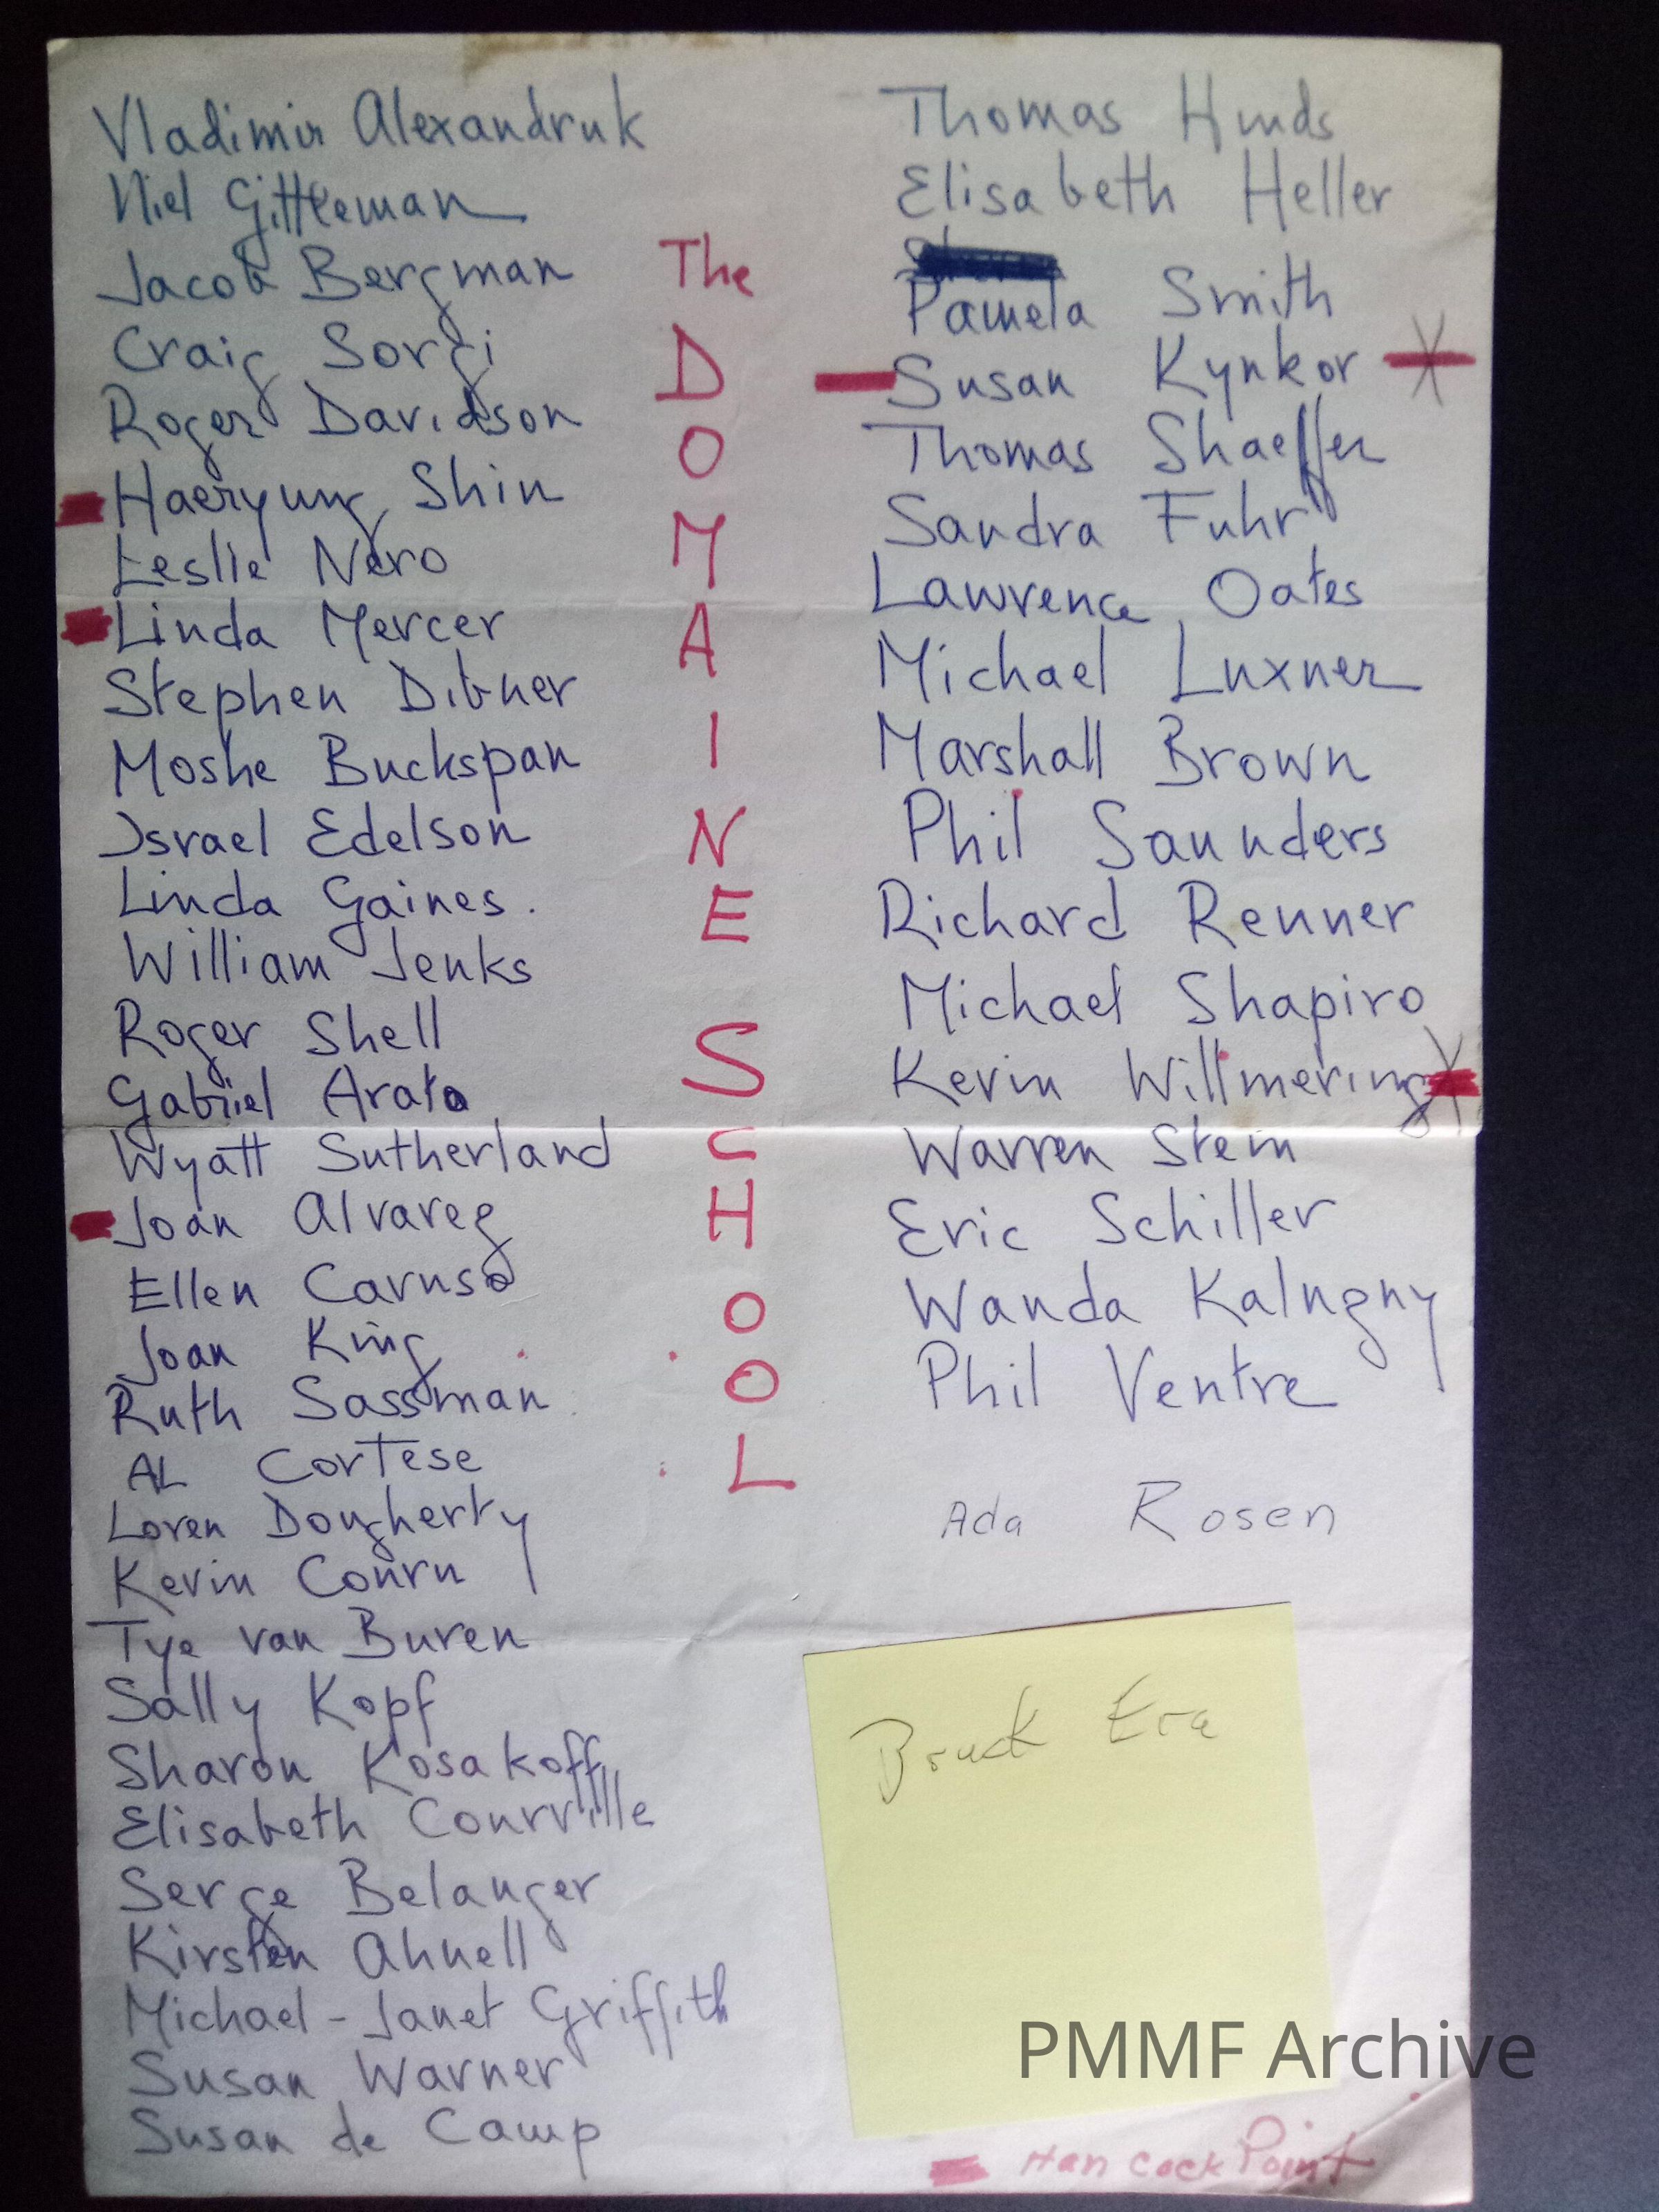 Vladimir Alexandruk
Niel Gittleman
Jacob Bergman
Craig Sorgi
Roger Davidson
Haeryung Shin
Leslie Nero
Linda Mercer
Stephen Dibner
Moshe Buckspan
Israel Edelson
Linda Gaines.
William Jenks
Roger Shell
Gabriel Arato
Wyatt Sutherland
Joan Alvarez
Ellen Caruso
Joan King
Ruth Sassman
AL Cortese
Loren Dougherty
Kevin Couru
Tye van Buren
Sally Kopf
Sharon Kosakoff
Elisabeth Courville
Serge Belanger
Kirsten Ahnell
Michael - Janet Griffith
Susan Warner
Susan de Camp
The
D
O
M
A
I
N
E
S
C
H
O
O
L
Thomas Hinds
Elisabeth Heller
Pamela Smith
Susan Kynkor
Thomas Shaeffer
Sandra Fuhr
Lawrence Oates
Michael Luxner
Marshall Brown
Phil Saunders
Richard Renner
Michael Shapiro
Kevin Willmering
Warren Stein
Eric Schiller
Wanda Kalugny
Phil Ventre
Ada Rosen
Bruck Era
PMMF Archive
Hancock Point